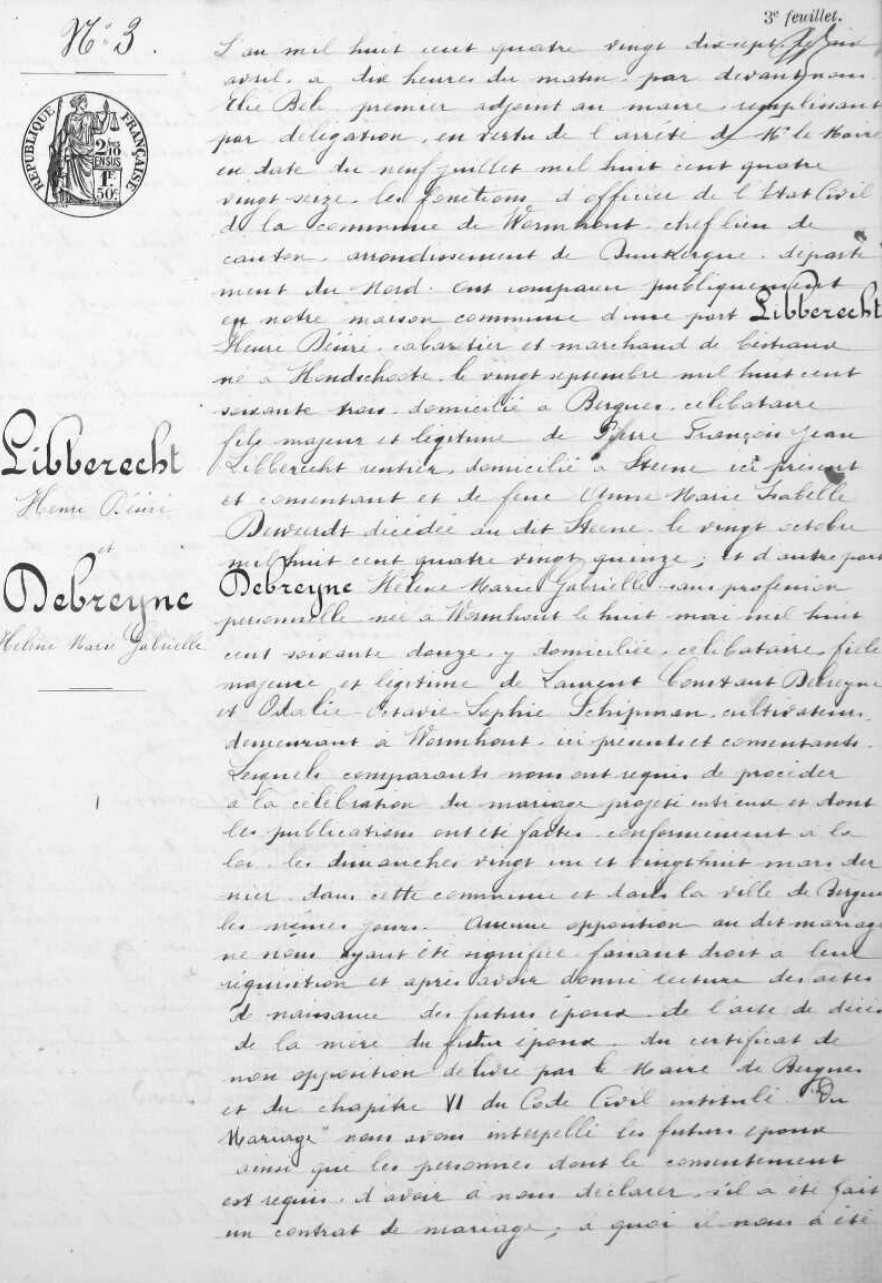 3e feuillet.
No 3.
RÉPUBLIQUE FRANÇAISE
2/10 EN SUS
1F 50c
L'an mil huit cent quatre vingt dix sept, le
avril, à dix heures du matin, par devant nous
Elie Bel premier adjoint au maire, remplissant
par délégation, en vertu de l'arrêté de Mr le Maire
en date du neuf juillet mil huit cent quatre
vingt seize, les fonctions d'officier de l'Etat Civil
de la commune de Wormhout, chef lieu de
canton, arrondissement de Dunkerque, départe
ment du Nord. Ont comparu publiquement
en notre maison commune d'une part Libberecht
Henri Désiré, cabaretier et marchand de bestiaux
né à Hondschoote, le vingt septembre mil huit cent
soixante trois, domicilié à Bergues, célibataire
fils majeur et légitime de Pierre François Jean
Libberecht rentier, domicilié à Steene ici présent
et consentant et de feue Anne Marie Isabelle
décédée au dit Steene, le vingt octobre
mil huit cent quatre vingt quinze; et d'autre part
Debreyne Hélène Marie Gabrielle sans profession
personnelle née à Wormhout le huit mai mil huit
cent soixante douze, y domiciliée, célibataire, fille
majeure et légitime de Laurent Constant Debreyne
et Odalie Octavie Sophie Schipman, cultivateurs,
demeurant à Wormhout, ici présents et consentants.
Lesquels comparants nous ont requis de procéder
à la célébration du mariage projeté entre eux et dont
les publications ont été faites conformément à la
loi, les dimanches vingt un et vingt huit mars der
nier, dans cette commune et dans la ville de Bergues
les mêmes jours. Aucune opposition au dit mariage
ne nous ayant été signifiée, faisant droit à leur
réquisition et après avoir donné lecture des actes
de naissance des futurs époux, de l'acte de décès
de la mère du futur époux, du certificat de
non opposition délivré par le Maire de Bergues
et du chapitre VI du Code Civil intitulé "Du
Mariage" nous avons interpellé les futurs époux
ainsi que les personnes dont le consentement
est requis, d'avoir à nous déclarer s'il a été fait
un contrat de mariage, à quoi il nous a été
Libberecht
Henri Désiré
et
Debreyne
Hélène Marie Gabrielle